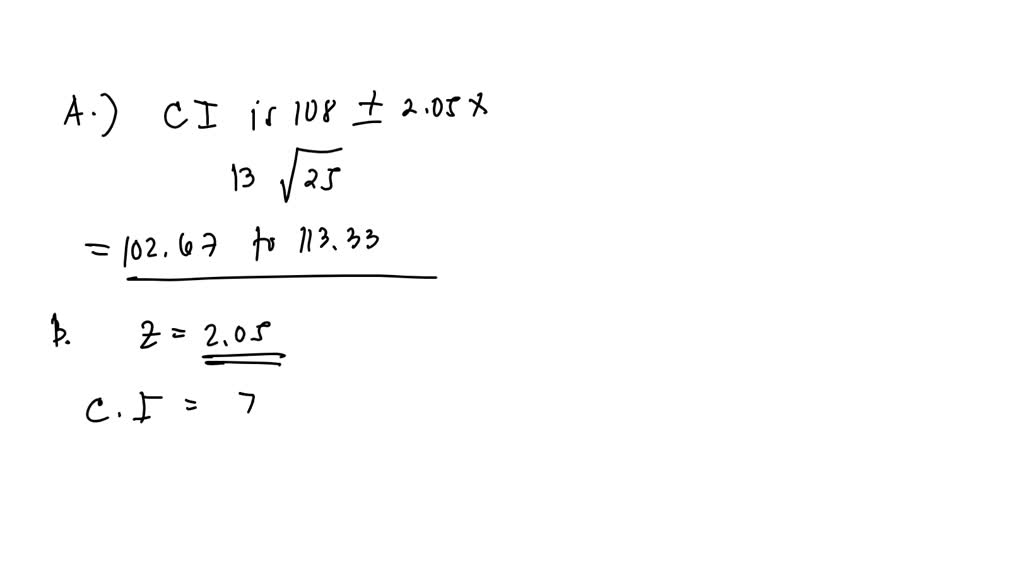 A.) CI is 108 ± 2.05 x
13 √25
= 102.67 to 113.33
b. z = 2.05
C.I = 7